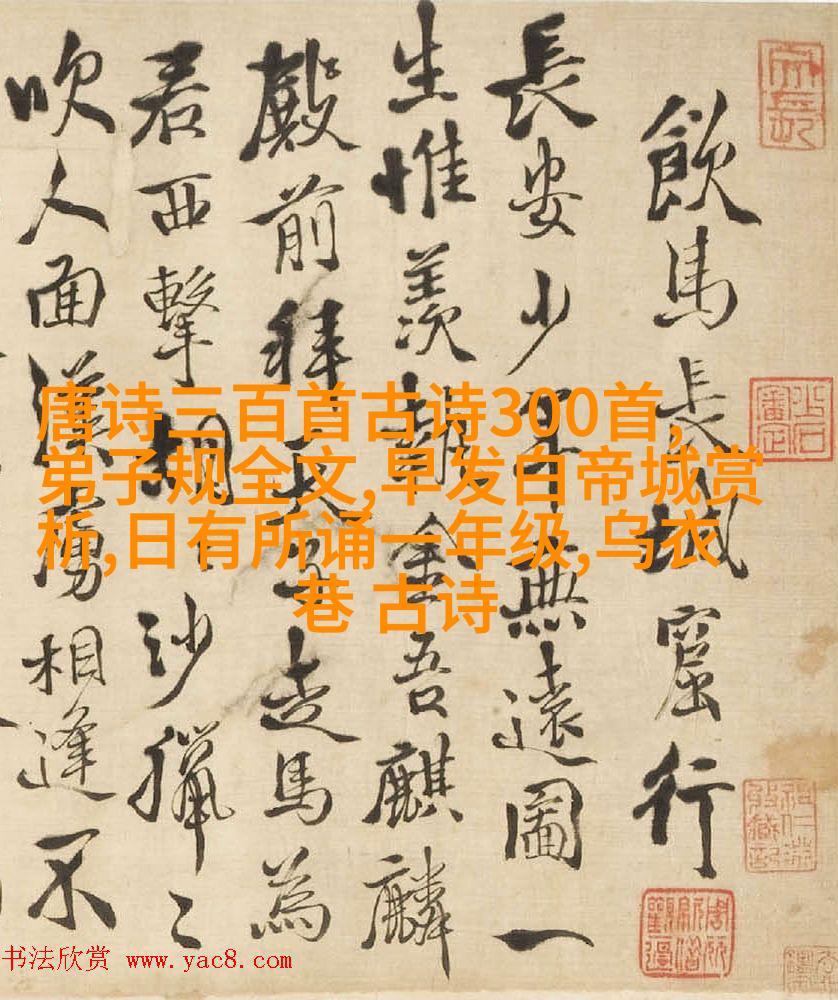 飲馬長城窟行
長安少年無遠圖一
生惟羨執金吾麒麟
殿前拜天子走馬為
君西擊胡〻沙獵〻
吹人面漢虜相逢不
唐诗三百首古诗300首,
弟子规全文,早发白帝城赏
析,日有所诵一年级,乌衣
巷 古诗
书法欣赏 www.yac8.com